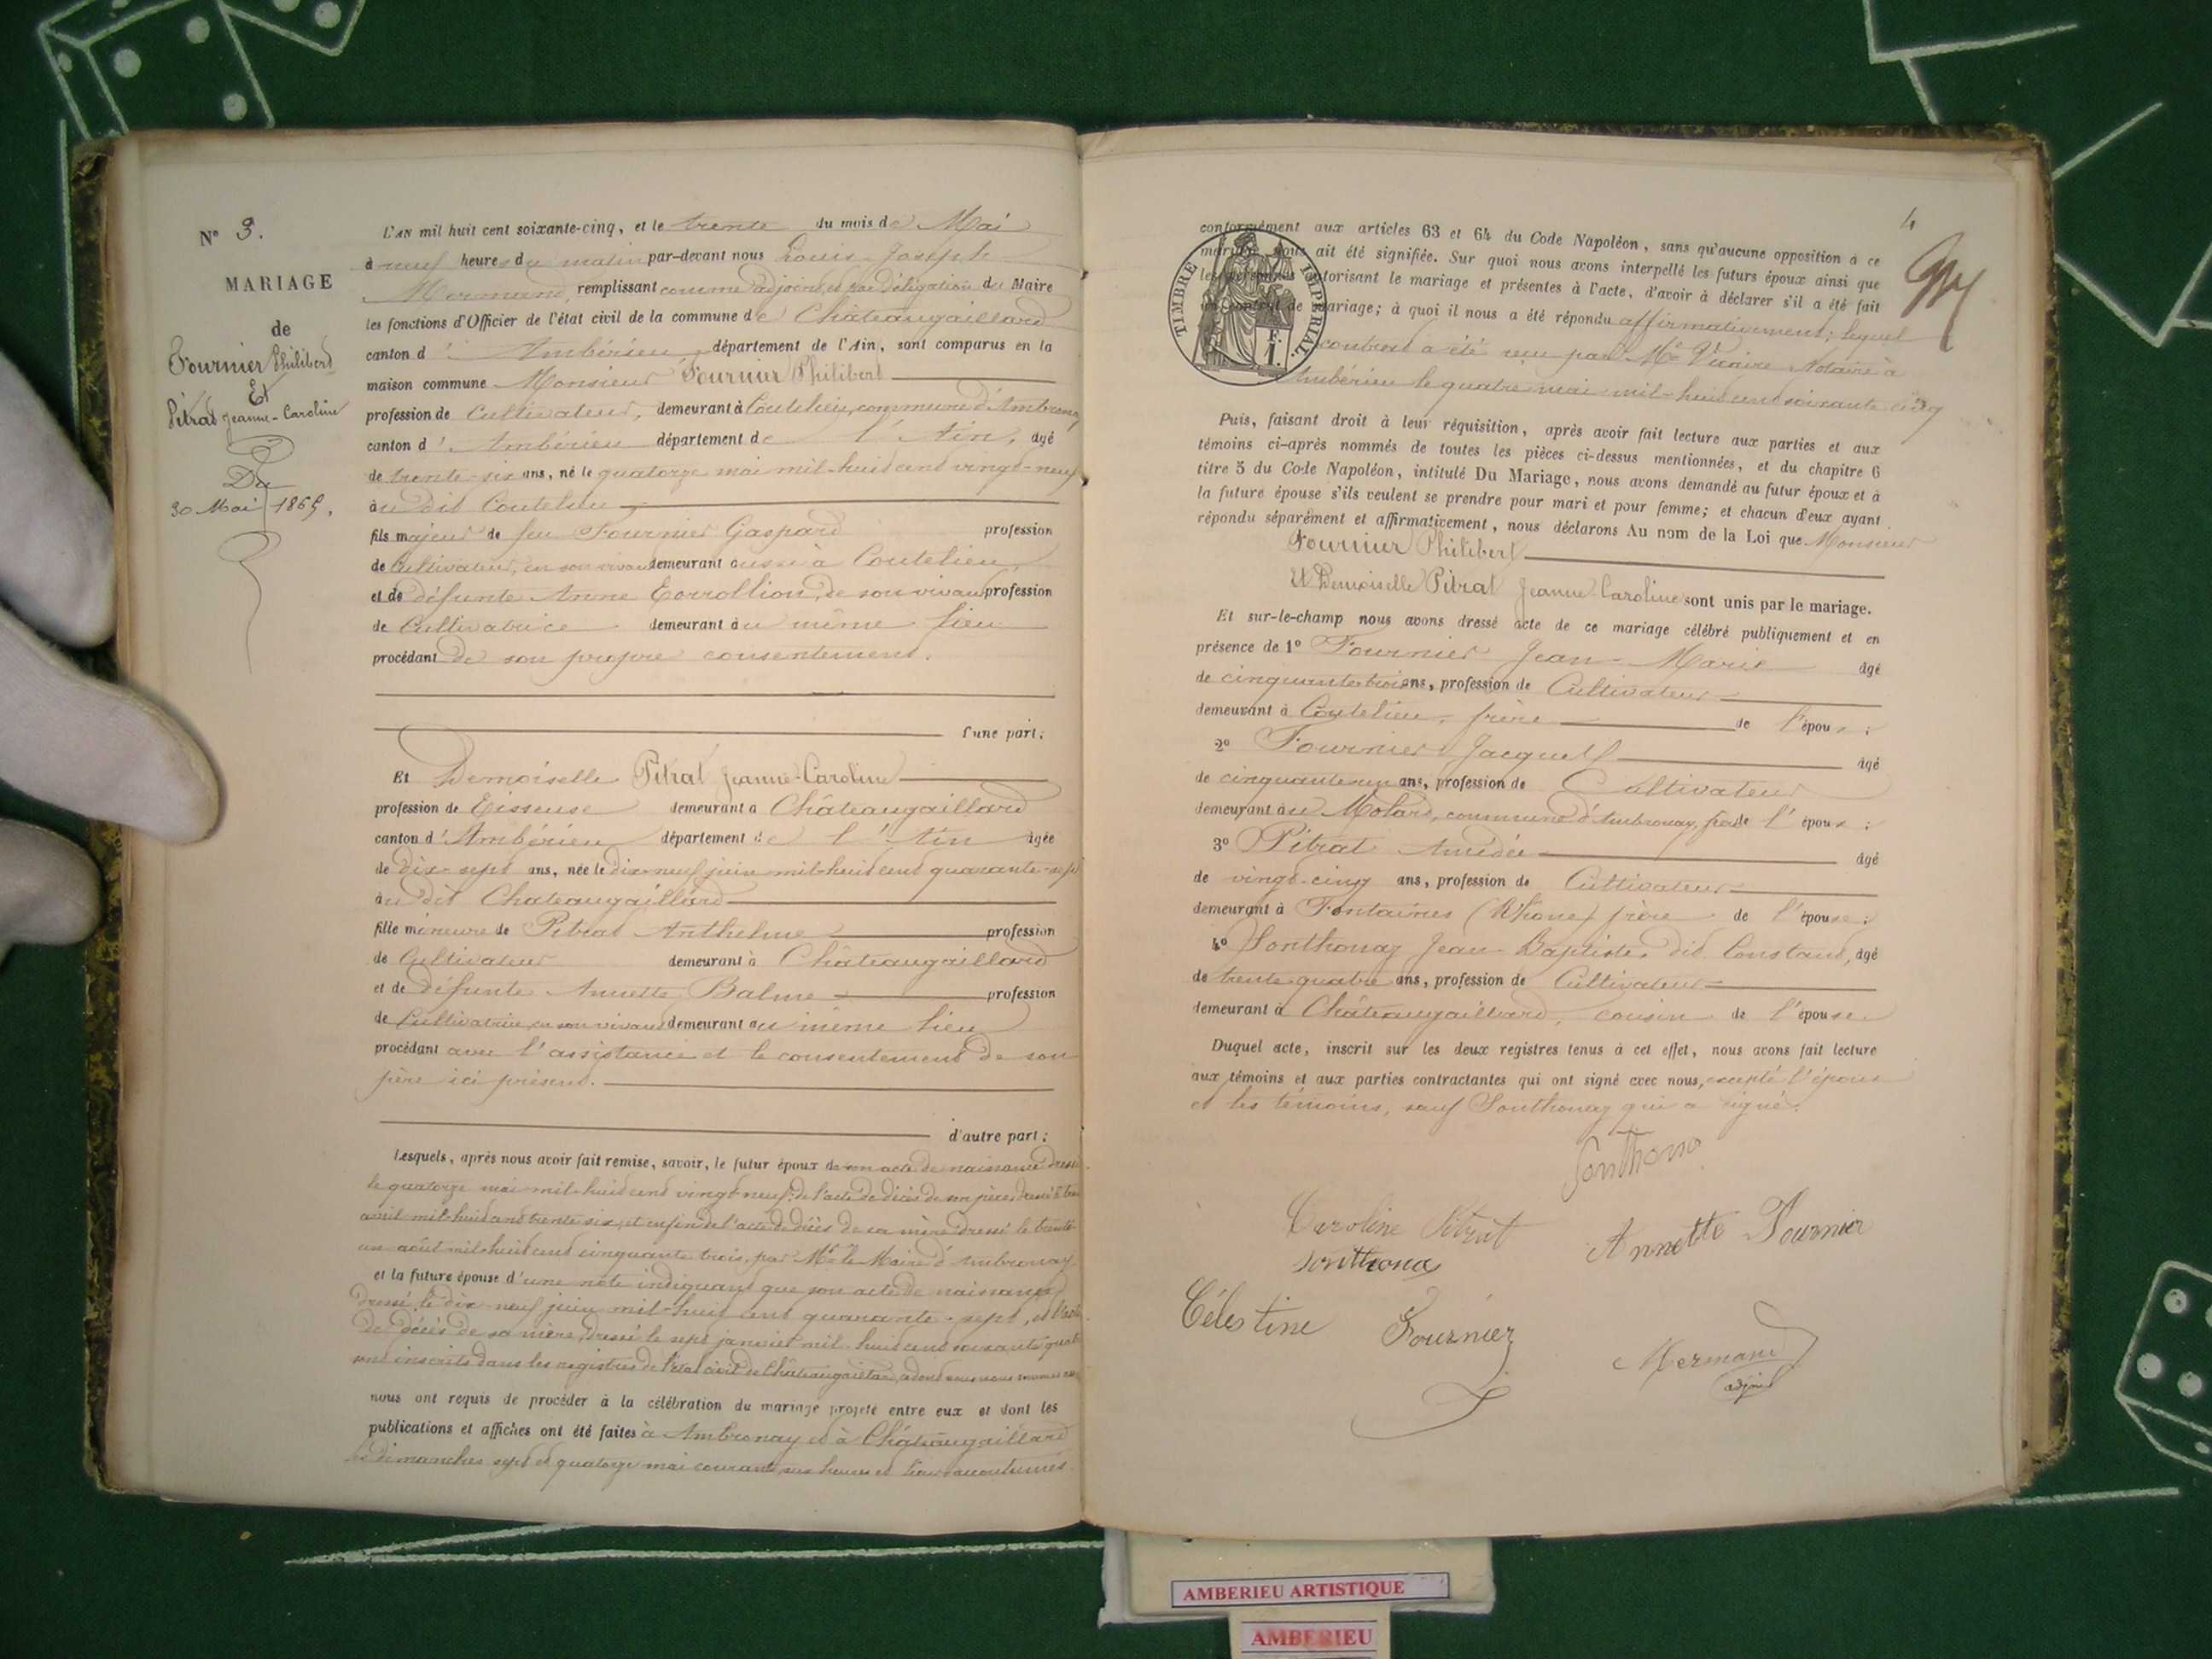 N° 3.
MARIAGE
de
Fournier Philibert
Et
Pitrat Jeanne-Caroline
Du
30 Mai 1865.
L'AN mil huit cent soixante-cinq, et le trente du mois de Mai
à neuf heures du matin par-devant nous Louis Joseph
Mermand, remplissant comme adjoint et par délégation du Maire
les fonctions d'Officier de l'état civil de la commune de Châteaugaillard
canton d'Ambérieu département de l'Ain, sont comparus en la
maison commune Monsieur Fournier Philibert
profession de Cultivateur, demeurant à Coutelieu, commune d'Ambronay
canton d'Ambérieu département de l'Ain, âgé
de trente-six ans, né le quatorze mai mil-huit cent vingt-neuf
au dit Coutelieu
fils majeur de feu Fournier Gaspard profession
de Cultivateur, en son vivant demeurant aussi à Coutelieu,
et de défunte Anne de son vivant profession
de Cultivatrice demeurant au même lieu
procédant de son propre consentement.
d'une part;
Et Demoiselle Pitrat Jeanne-Caroline
profession de Tisseuse demeurant à Châteaugaillard
canton d'Ambérieu département de l'Ain âgée
de dix-sept ans, née le dix-neuf juin mil-huit cent quarante-sept
au dit Chateaugaillard
fille mineure de Pitrat Anthelme profession
de Cultivateur demeurant à Châteaugaillard
et de défunte Annette Balme profession
de Cultivatrice en son vivant demeurant au même lieu
procédant avec l'assistance et le consentement de son
père ici présent.
d'autre part;
Lesquels, après nous avoir fait remise, savoir, le futur époux de son acte de naissance dressé
le quatorze mai mil-huit cent vingt-neuf; de l'acte de décès de son père, dressé le
avril mil-huit cent trente six, et enfin de l'acte de décès de sa mère dressé le trente
un août mil-huit cent cinquante trois, par Mr le Maire d'Ambronay
et la future épouse d'une note indiquant que son acte de naissance
dressé le dix-neuf juin mil-huit cent quarante-sept, et l'acte
de décès de sa mère, dressé le sept janvier mil-huit cent soixante quatre
sont inscrits dans les registres de l'état civil de Châteaugaillard, dont nous nous sommes
nous ont requis de procéder à la célébration du mariage projeté entre eux et dont les
publications et affiches ont été faites à Ambronay et à Châteaugaillard
les dimanches sept et quatorze mai courant, aux heures et lieux accoutumés.
4
conformément aux articles 63 et 64 du Code Napoléon, sans qu'aucune opposition à ce
mariage nous ait été signifiée. Sur quoi nous avons interpellé les futurs époux ainsi que
les personnes autorisant le mariage et présentes à l'acte, d'avoir à déclarer s'il a été fait
un contrat de mariage; à quoi il nous a été répondu affirmativement; lequel
contrat a été reçu par Me Vicaire Notaire à
Ambérieu le quatre mai mil-huit cent soixante cinq
TIMBRE IMPÉRIAL.
F.
1.
Puis, faisant droit à leur réquisition, après avoir fait lecture aux parties et aux
témoins ci-après nommés de toutes les pièces ci-dessus mentionnées, et du chapitre 6
titre 5 du Code Napoléon, intitulé Du Mariage, nous avons demandé au futur époux et à
la future épouse s'ils veulent se prendre pour mari et pour femme; et chacun d'eux ayant
répondu séparément et affirmativement, nous déclarons Au nom de la Loi que Monsieur
Fournier Philibert
Et Demoiselle Pitrat Jeanne Caroline sont unis par le mariage.
Et sur-le-champ nous avons dressé acte de ce mariage célébré publiquement et en
présence de 1° Fournier Jean-Marie âgé
de cinquante-trois ans, profession de Cultivateur
demeurant à Coutelieu, frère de l'époux;
2° Fournier Jacques âgé
de cinquante-un ans, profession de Cultivateur
demeurant au Molard, commune d'Ambronay, frère de l'époux;
3° Pitrat Amédée âgé
de vingt-cinq ans, profession de Cultivateur
demeurant à Fontaines (Rhône) frère de l'épouse;
4° Sonthonay Jean-Baptiste, dit Constant, âgé
de trente-quatre ans, profession de Cultivateur
demeurant à Châteaugaillard, cousin de l'épouse
Duquel acte, inscrit sur les deux registres tenus à cet effet, nous avons fait lecture
aux témoins et aux parties contractantes qui ont signé avec nous, excepté l'époux
et les témoins, sauf Sonthonay qui a signé.
Caroline Pitrat
Annette Fournier
Sonthona
Célestine Fournier
Mermand
adjoint
AMBERIEU ARTISTIQUE
AMBERIEU